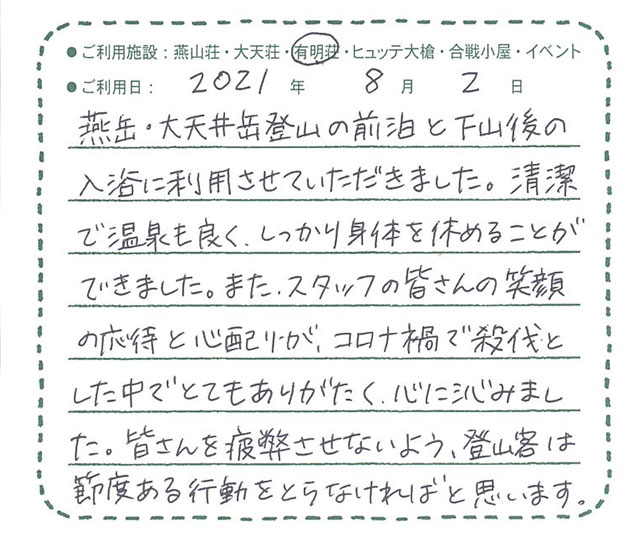 ●ご利用施設：燕山荘・大天荘・有明荘・ヒュッテ大槍・合戦小屋・イベント
●ご利用日： 2021 年 8 月 2 日
燕岳・大天井岳登山の前泊と下山後の
入浴に利用させていただきました。清潔
で温泉も良く、しっかり身体を休めることが
できました。また、スタッフの皆さんの笑顔
の応待と心配りが、コロナ禍で殺伐と
した中でとてもありがたく、心に沁みまし
た。皆さんを疲弊させないよう、登山客は
節度ある行動をとらなければと思います。